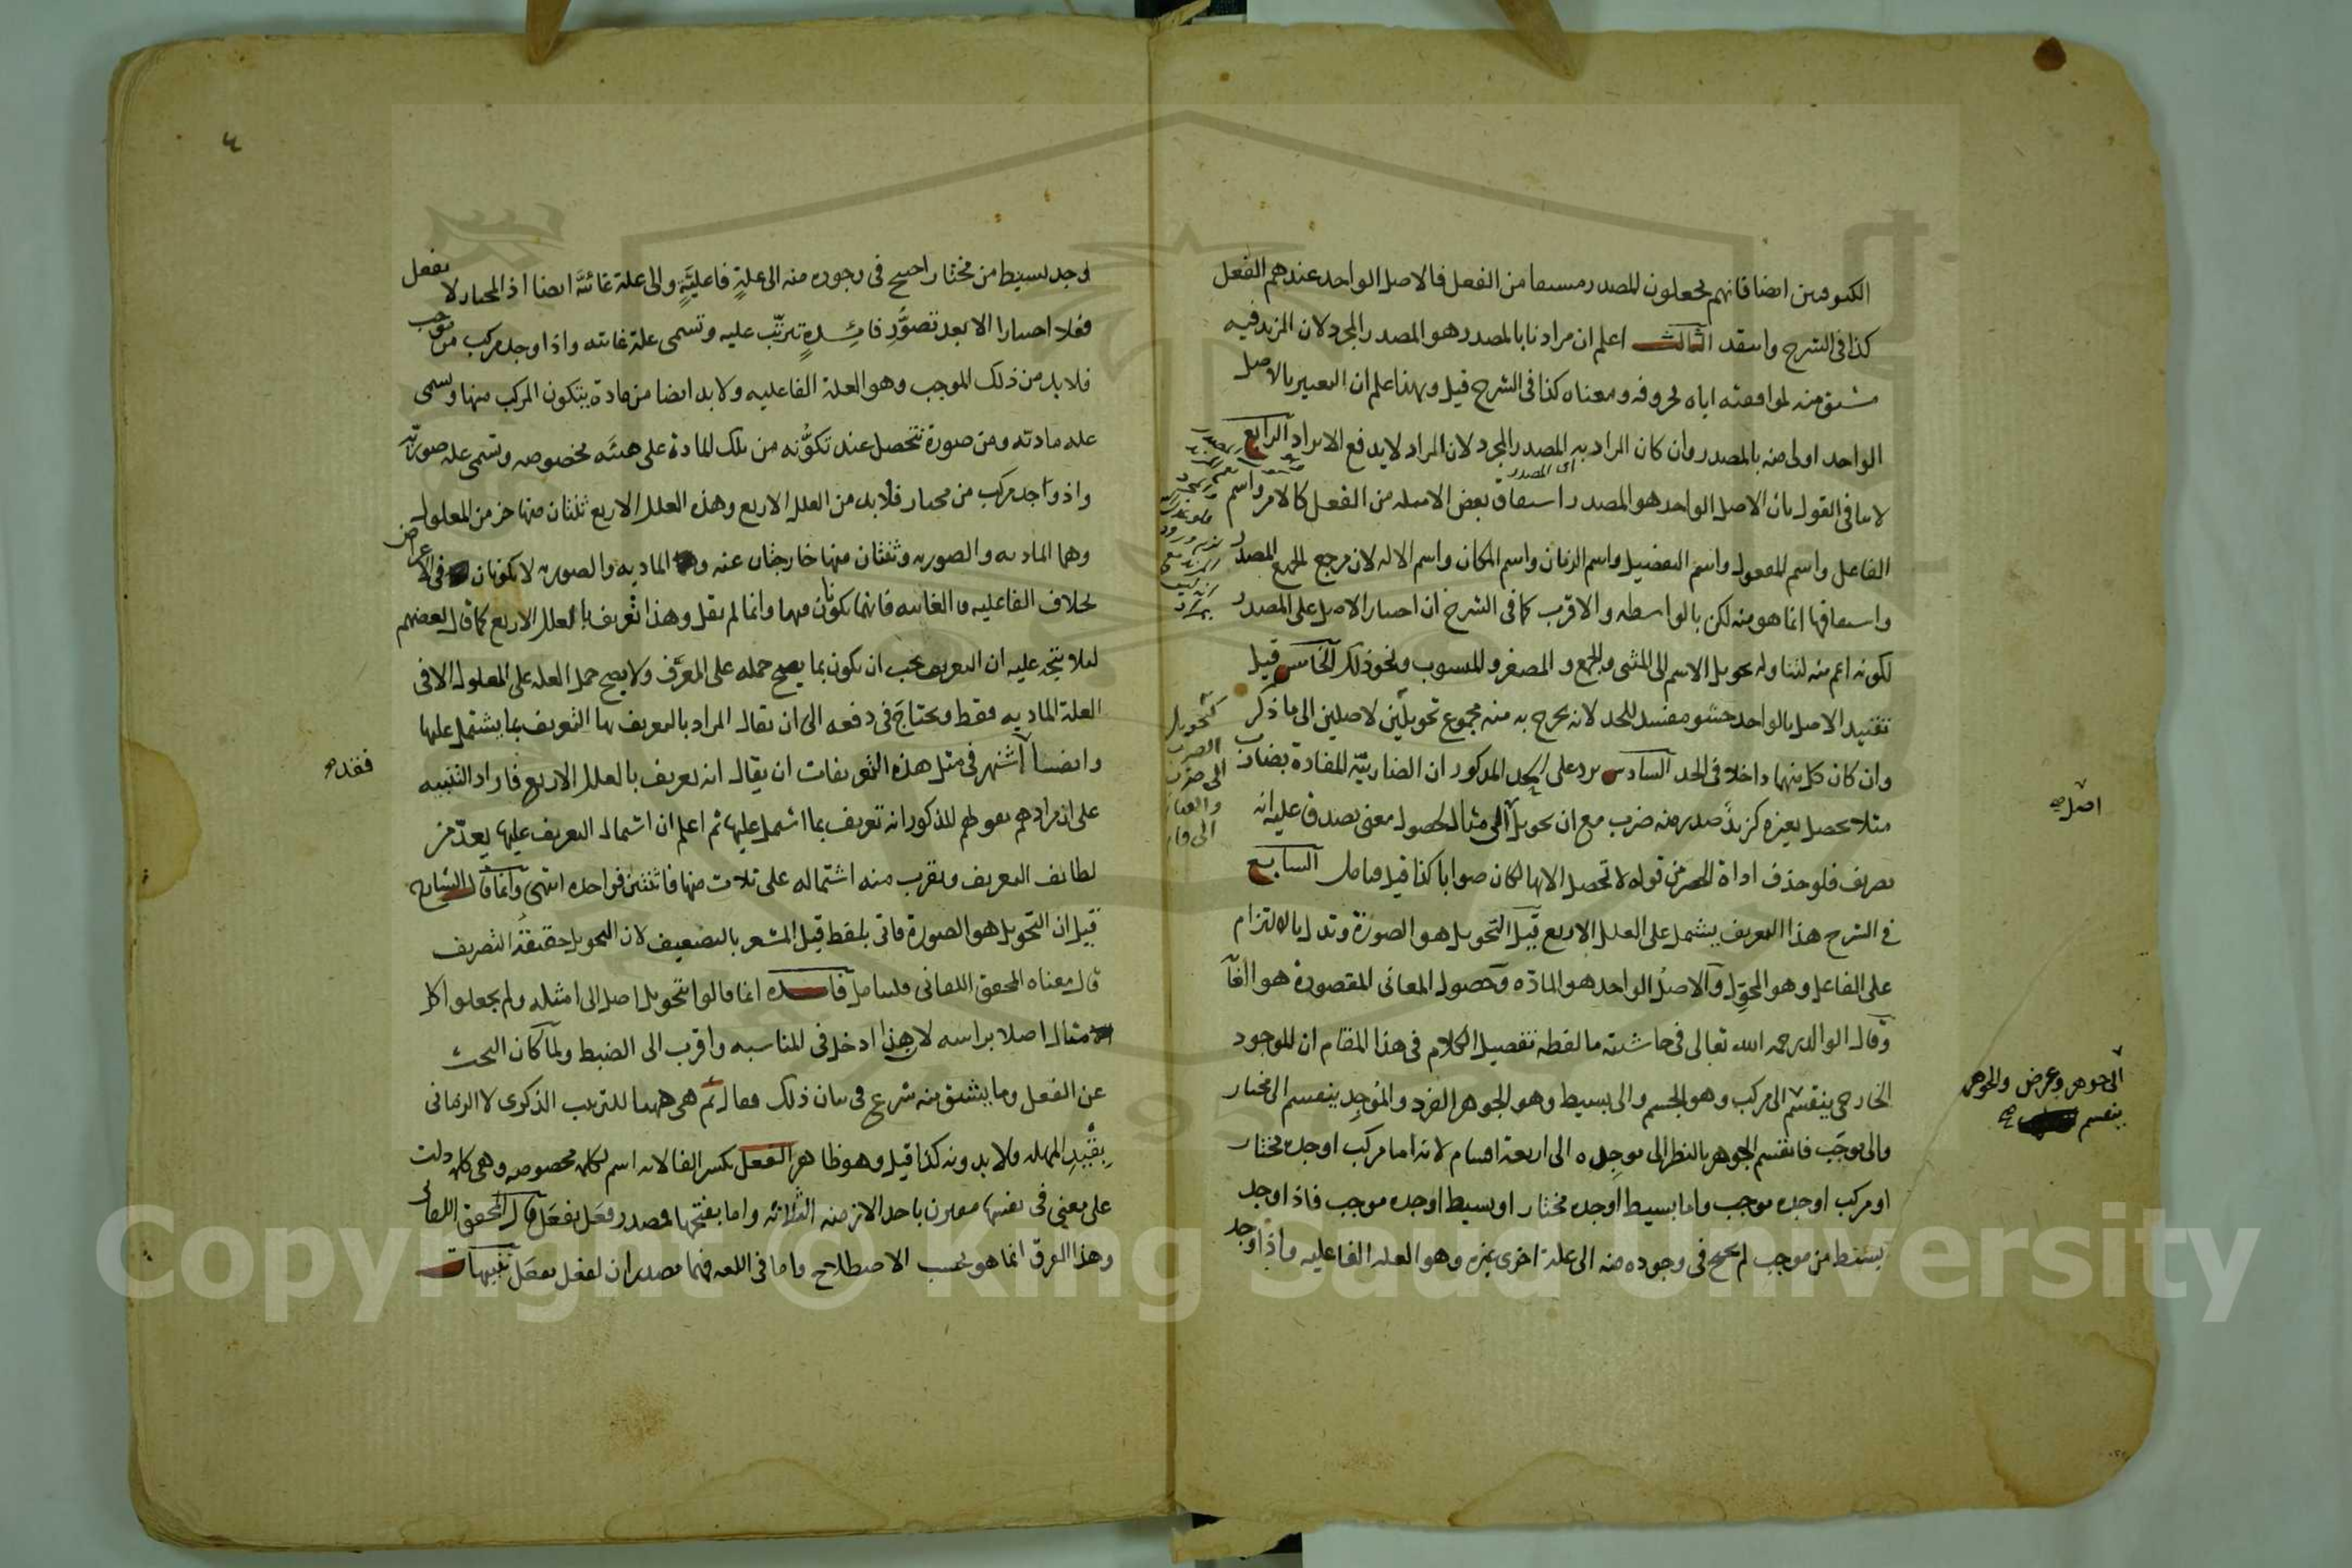 الكوفيين ايضا فانهم يجعلون المصدر مشتقا من الفعل فالاصل الواحد عندهم الفعل
كذا في الشرح وانتقد الثالث اعلم ان مرادنا بالمصدر هو المصدر المجرد لان المزيد فيه
مشتق منه لموافقته اياه بحروفه ومعناه كذا في الشرح قيل وبهذا علم ان التعبير بالاصل
الواحد اولى منه بالمصدر وان كان المراد به المصدر المجرد لان المراد لا يدفع الايراد الرابع
اى المصدر
لا ينافي القول بان الاصل الواحد هو المصدر اشتقاق بعض الامثله من الفعل كالامر واسم
الفاعل واسم المفعول واسم التفضيل واسم الزمان واسم المكان واسم الاله لان مرجع الجميع المصدر
واشتقاقها انما هو منه لكن بالواسطه والاقرب كما في الشرح ان اختيار الاصل على المصدر
لكونه اعم منه لتناوله تحويل الاسم الى المثنى والجمع والمصغر والمنسوب ونحو ذلك الخامس قيل
تقييد الاصل بالواحد حشو مفسد للحد لانه يخرج به منه مجموع تحويلين لاصلين الى ما ذكر
وان كان كل منهما داخلا في الحد السادس يرد على الحد المذكور ان الضاربية المفادة بضارب
مثلا تحصل بغيره كزيد صدر منه ضرب مع ان تحويل الى مثال لحصول معنى يصدق عليه انه
تصريف فلو حذف اداة الحصر من قوله لا تحصل الا بها لكان صوابا كذا قيل فتامل السابع
في الشرح هذا التعريف يشتمل على العلل الاربع قيل التحويل هو الصورة وتدل بالالتزام
على الفاعل وهو المحول والاصل الواحد هو المادة وحصول المعاني المقصودة هو الغا
وقال الوالد رحمه الله تعالى في حاشيته ما لفظه تفصيل الكلام في هذا المقام ان الموجود
الخارجي ينقسم الى مركب وهو الجسم والى بسيط وهو الجوهر الفرد والموجد ينقسم الى مختار
والى موجب فانقسم الجوهر بالنظر الى موجده الى اربعة اقسام لانه اما مركب اوجده مختار
او مركب اوجده موجب واما بسيط اوجده مختار او بسيط اوجده موجب فاذا وجد
بسيط من موجب لم يحتج في وجوده منه الى علة اخرى غيره وهو العله الفاعليه واذا وجد
كتحويل
الضرب
الى ضرب
اصل صح
الى جوهر وعرض والجوهر
ينقسم صح
٤
وجد بسيط من مختار احتيج في وجوده منه الى علة فاعلية والى علة غائية ايضا اذ المختار لا يفعل
فعلا اختيارا الا بعد تصور فائدة تترتب عليه وتسمى علة غائيه واذا وجد مركب من موجب
فلا بد من ذلك الموجب وهو العلة الفاعليه ولا بد ايضا من مادة يتكون المركب منها وتسمى
عله مادته ومن صورة تتحصل عند تكونه من تلك المادة على هيئه مخصوصه وتسمى عله صورته
واذ وجد مركب من مختار فلا بد من العلل الاربع وهذه العلل الاربع ثنتان منها جز من المعلول
وهما الماديه والصوريه وثنتان منها خارجتان عنه و الماديه والصوريه لا يكونان في الاعراض
بخلاف الفاعليه والغائيه فانهما يكونان فيهما وانما لم يقل وهذا تعريف بالعلل الاربع كما قال بعضهم
لئلا يتجه عليه ان التعريف يجب ان يكون بما يصح حمله على المعرف ولا يصح حمل العله على المعلول الا في
العلة الماديه فقط ويحتاج في دفعه الى ان يقال المراد بالتعريف بها التعريف بما يشتمل عليها
وايضا اشتهر في مثل هذه التعريفات ان يقال انه تعريف بالعلل الاربع فاراد التنبيه
على ان مرادهم بقولهم المذكور انه تعريف بما اشتمل عليها ثم اعلم ان اشتمال التعريف عليها يعد من
لطائف التعريف ويقرب منه اشتماله على ثلاث منها فاثنتين فواحده انتهى وانما قال الشارح
قيل ان التحويل هو الصورة فاتى بلفظ قيل المشعر بالتضعيف لان التحويل حقيقة التصريف
قال معناه المحقق اللقاني فليتامل فائده انما قالوا تحويل اصل الى امثله ولم يجعلوا كل
مثال اصلا براسه لان هذا ادخل في المناسبه واقرب الى الضبط ولما كان البحث
عن الفعل وما يشتق منه شرع في بيان ذلك فقال ثم هي ههنا للترتيب الذكرى لا الزماني
بقيد المهله ولا بدونه كذا قيل وهو ظاهر الفعل بكسر الفا لانه اسم لكلمه مخصوصه وهي كلمه دلت
على معنى في نفسها مقترن باحد الازمنه الثلاثه واما بفتحها فمصدر فعل يفعل قال المحقق اللقاني
وهذا الفرق انما هو بحسب الاصطلاح واما في اللغه فهما مصدران لفعل يفعل تنبيهات
فقد صح
Copyright © King Saud University